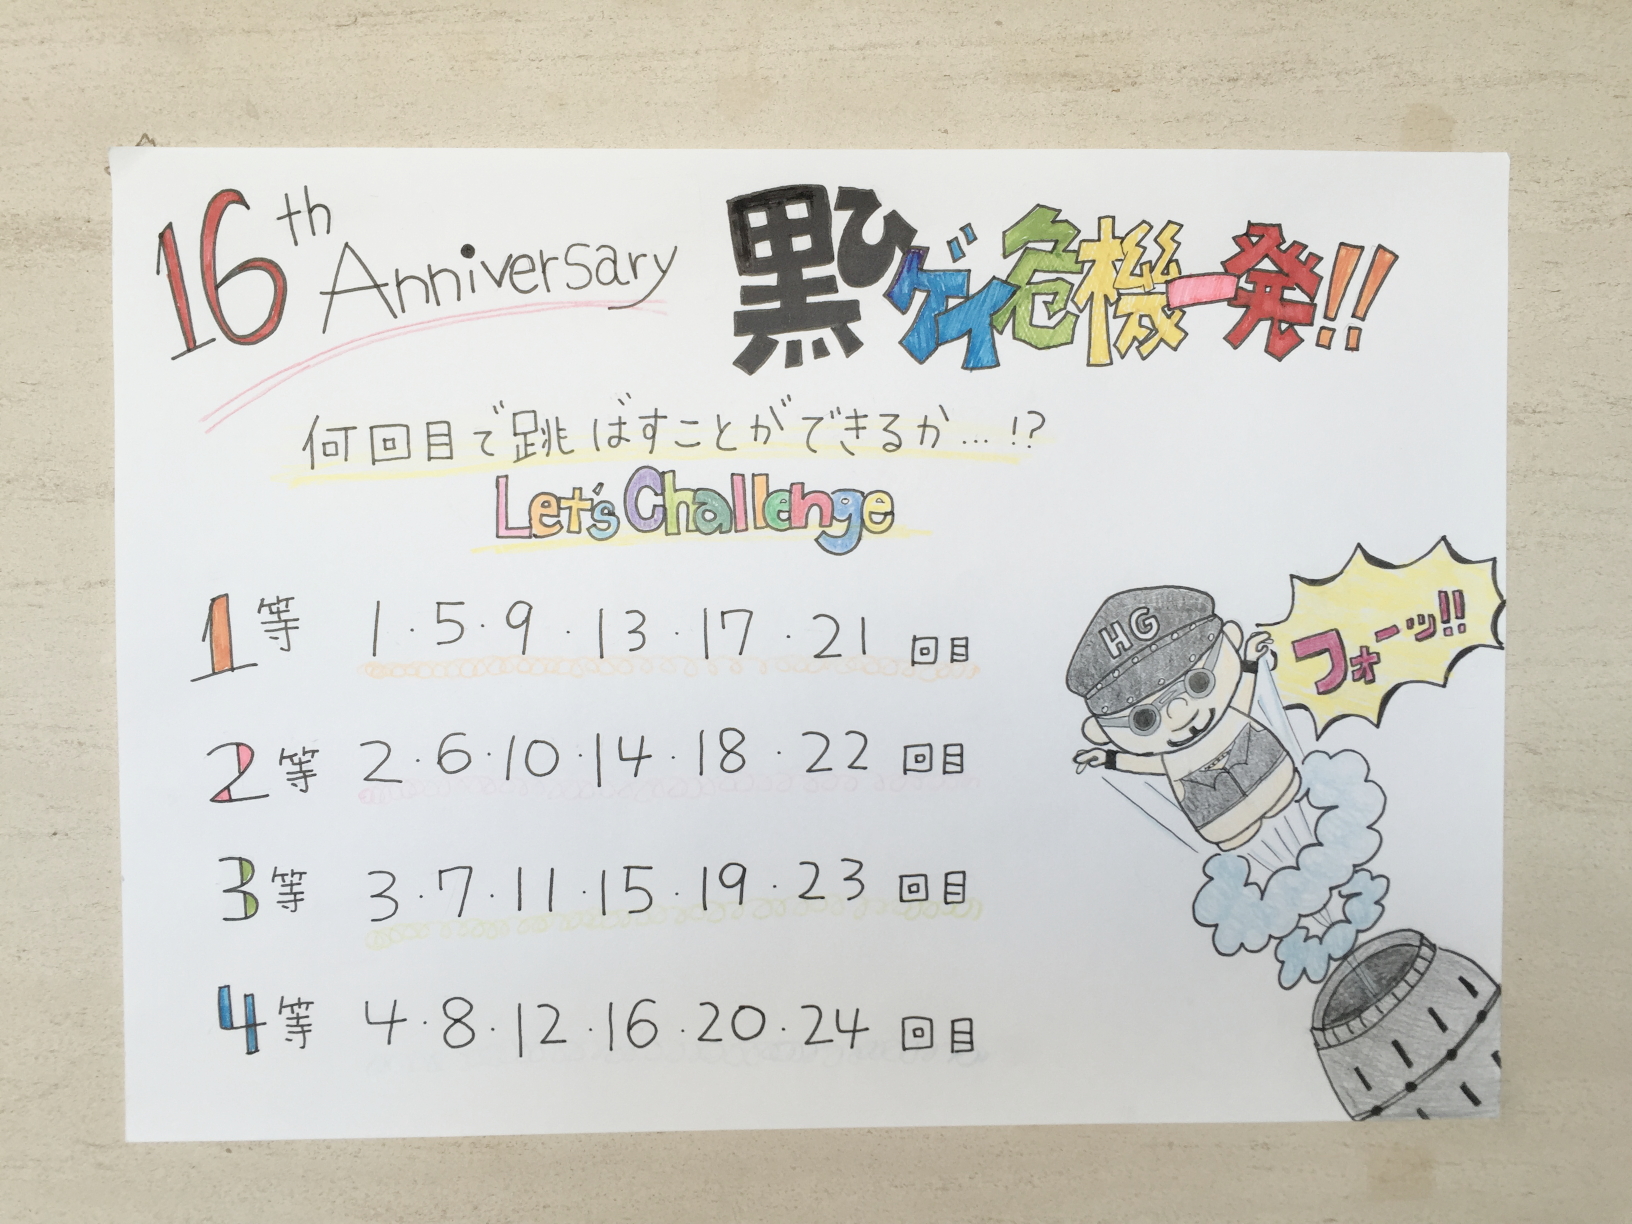 16th Anniversary
黒ひゲイ危機一発!!
何回目で跳ばすことができるか…!?
Let's Challenge
1等 1・5・9・13・17・21回目
2等 2・6・10・14・18・22回目
3等 3・7・11・15・19・23回目
4等 4・8・12・16・20・24回目
HG
フォーッ!!